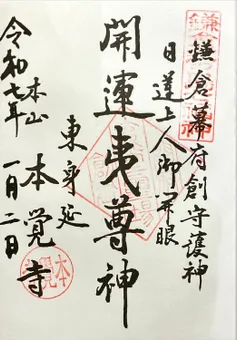 鎌倉幕府創守護神
日蓮上人御開眼
開運夷尊神
東身延
本山 本覚寺
令和七年 一月二日